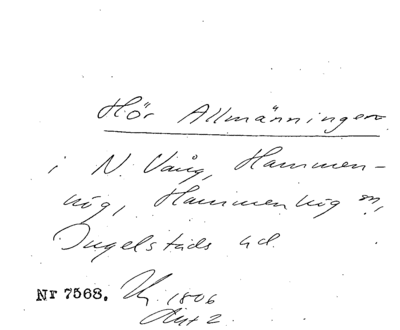 Hör Allmänningen
i N. Vång, Hammen-
hög, Hammenhög sn,
Ingelstads hd.
Nr 7568. 1806
Akt 2.